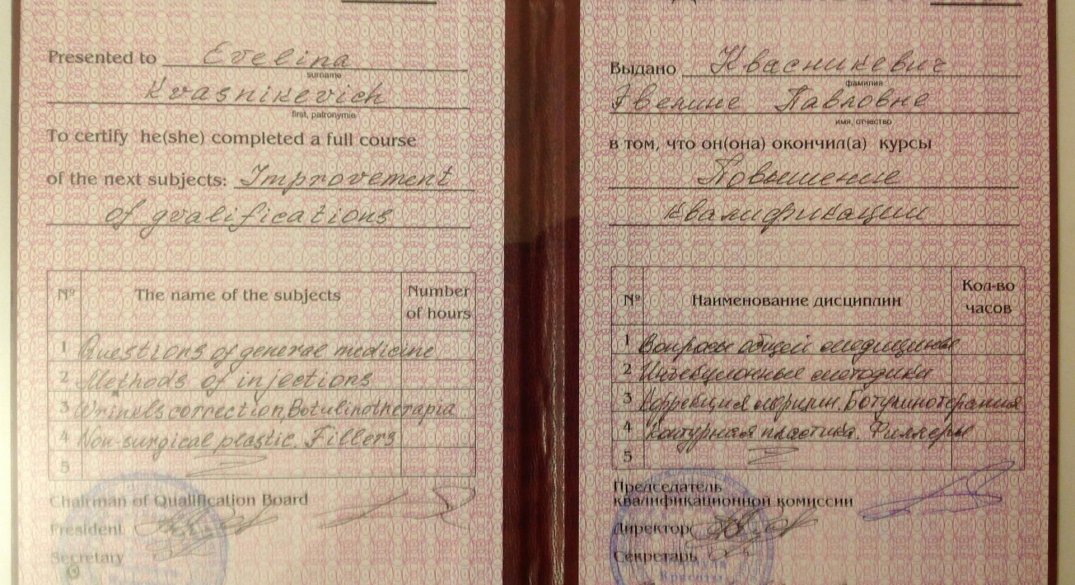 Presented to Evelina
surname
Kvasnikevich
first, patronymic
To certify he(she) completed a full course
of the next subjects: Improvement
of gvalifications
Nº The name of the subjects Number of hours
1 Questions of general medicine
2 Methods of injections
3 Wrinels correction, Botulinotherapia
4 Non-surgical plastic. Fillers
5
Chairman of Qualification Board
President
Secretary
Выдано Квасникевич
фамилия
Эвелине Павловне
имя, отчество
в том, что он(она) окончил(а) курсы
Повышение
квалификации
Nº Наименование дисциплин Кол-во часов
1 Вопросы общей медицины
2 Инъекционные методики
3 Коррекция морщин. Ботулинотерапия
4 Контурная пластика. Филлеры
5
Председатель
квалификационной комиссии
Директор
Секретарь
Красоты